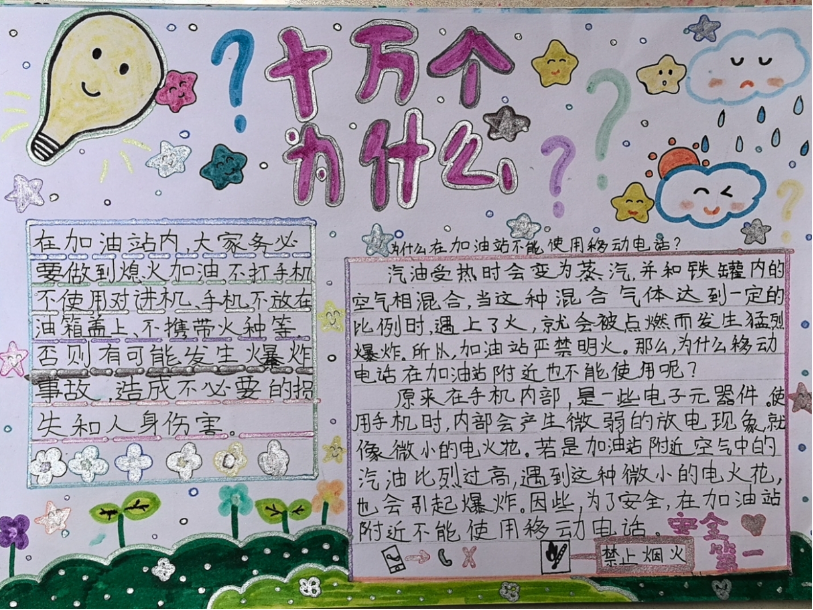 十万个
为什么
在加油站内,大家务必
要做到熄火加油不打手机
不使用对进机、手机不放在
油箱盖上、不携带火种等
否则有可能发生火爆炸
事故,造成不必要的损
失和人身伤害。
为什么在加油站不能使用移动电话?
汽油受热时会变为蒸汽,并和铁罐内的
空气相混合,当这种混合气体达到一定的
比例时,遇上了火,就会被点燃而发生猛烈
爆炸。所以,加油站严禁明火。那么,为什么移动
电话在加油站附近也不能使用呢?
原来在手机内部,是一些电子元器件。使
用手机时,内部会产生微弱的放电现象,就
像微小的电火花。若是加油站附近空气中的
汽油比列过高,遇到这种微小的电火花,
也会引起爆炸。因些,为了安全,在加油站
附近不能使用移动电话。
安全
第一
禁止烟火